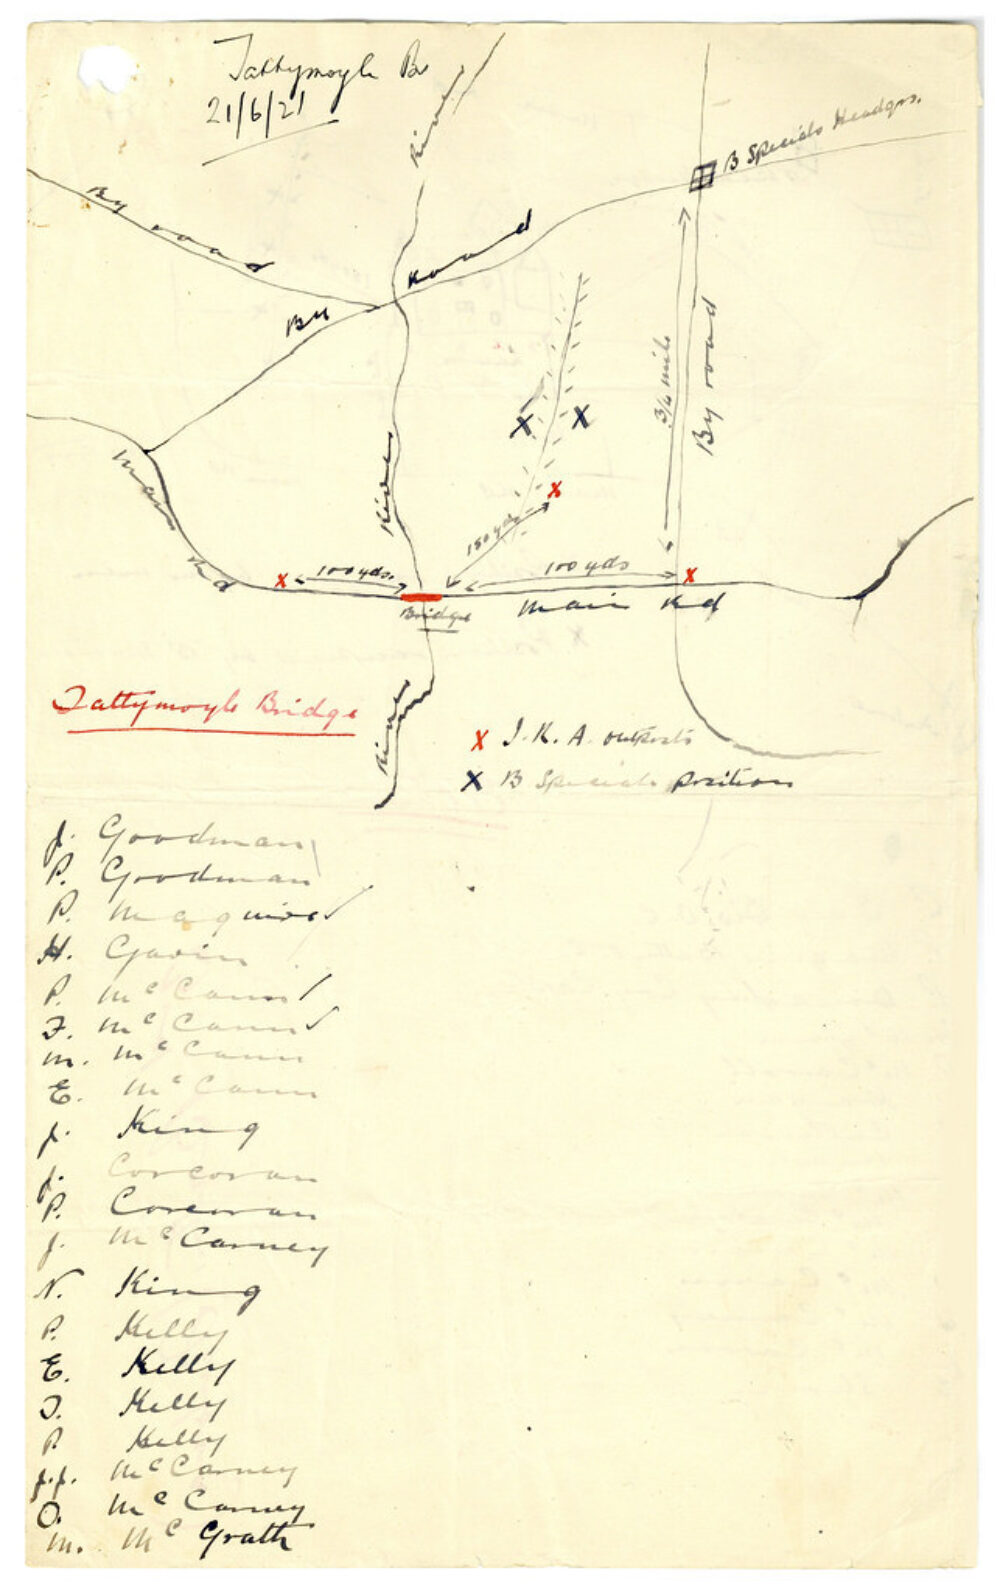 Tattymoyle Br
21/6/21
River
B Specials Headqrs.
By road
By Road
3/4 mile
By road
Main Rd
River
150 yds
100 yds.
100 yds
Bridge
Main Rd
Tattymoyle Bridge
River
X I.R.A. outposts
X B Specials Position
J. Goodman
P. Goodman
P. Maguire
H. Gavin
P. McCann
F. McCann
M. McCann
E. McCann
J. King
J. Corcoran
P. Corcoran
J. McCarney
N. King
P. Kelly
E. Kelly
J. Kelly
P. Kelly
J.J. McCarney
O. McCarney
M. McGrath